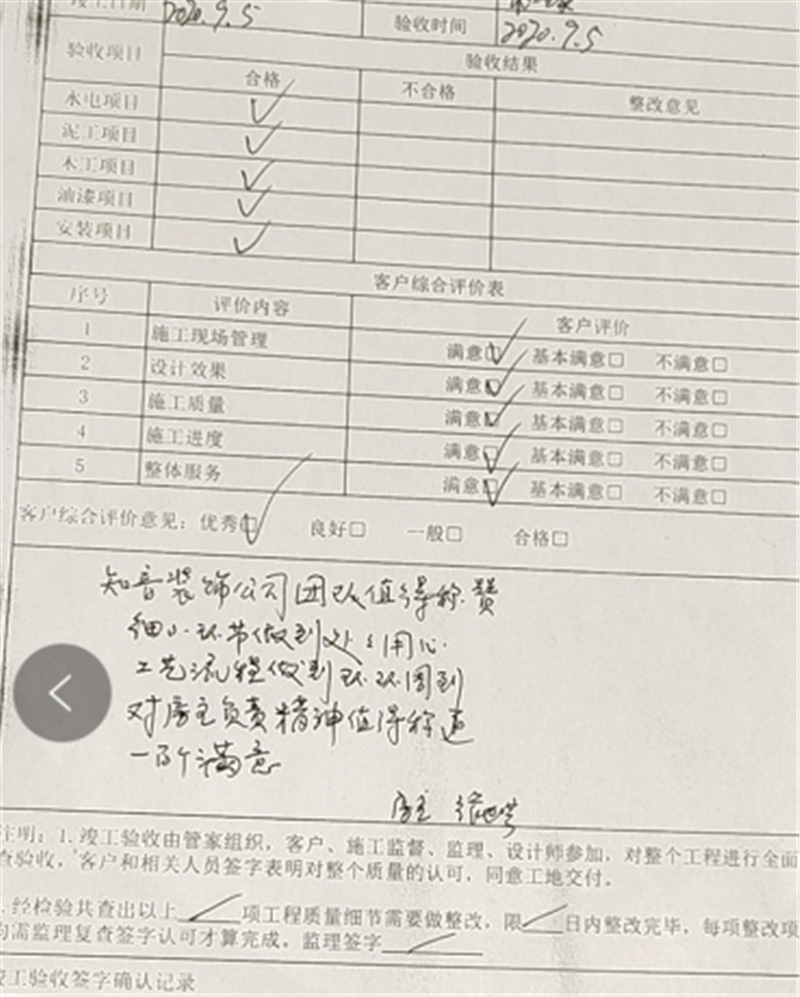 竣工日期 2020.9.5 验收时间 2020.9.5
验收项目 验收结果
合格 不合格 整改意见
水电项目 ✓
泥工项目 ✓
木工项目 ✓
油漆项目 ✓
安装项目 ✓
客户综合评价表
序号 评价内容 客户评价
1 施工现场管理 满意☑ 基本满意□ 不满意□
2 设计效果 满意☑ 基本满意□ 不满意□
3 施工质量 满意☑ 基本满意□ 不满意□
4 施工进度 满意☑ 基本满意□ 不满意□
5 整体服务 满意☑ 基本满意□ 不满意□
客户综合评价意见：优秀☑ 良好□ 一般□ 合格□
知音装饰公司团队值得称赞
细小环节做到处处用心
工艺流程做到环环周到
对房主负责精神值得称道
一百个满意
房主 张
注明：1. 竣工验收由管家组织，客户、施工监督、监理、设计师参加，对整个工程进行全面
查验收，客户和相关人员签字表明对整个质量的认可，同意工地交付。
. 经检验共查出以上 / 项工程质量细节需要做整改，限 / 日内整改完毕，每项整改项
均需监理复查签字认可才算完成。监理签字 /
竣工验收签字确认记录